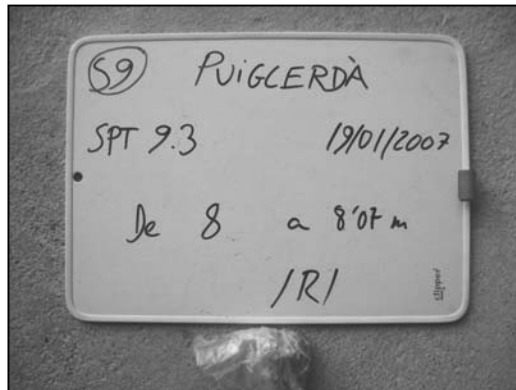 S9 PUIGCERDÀ
SPT 9.3 19/01/2007
De 8 a 8'07 m
/R/
clipper